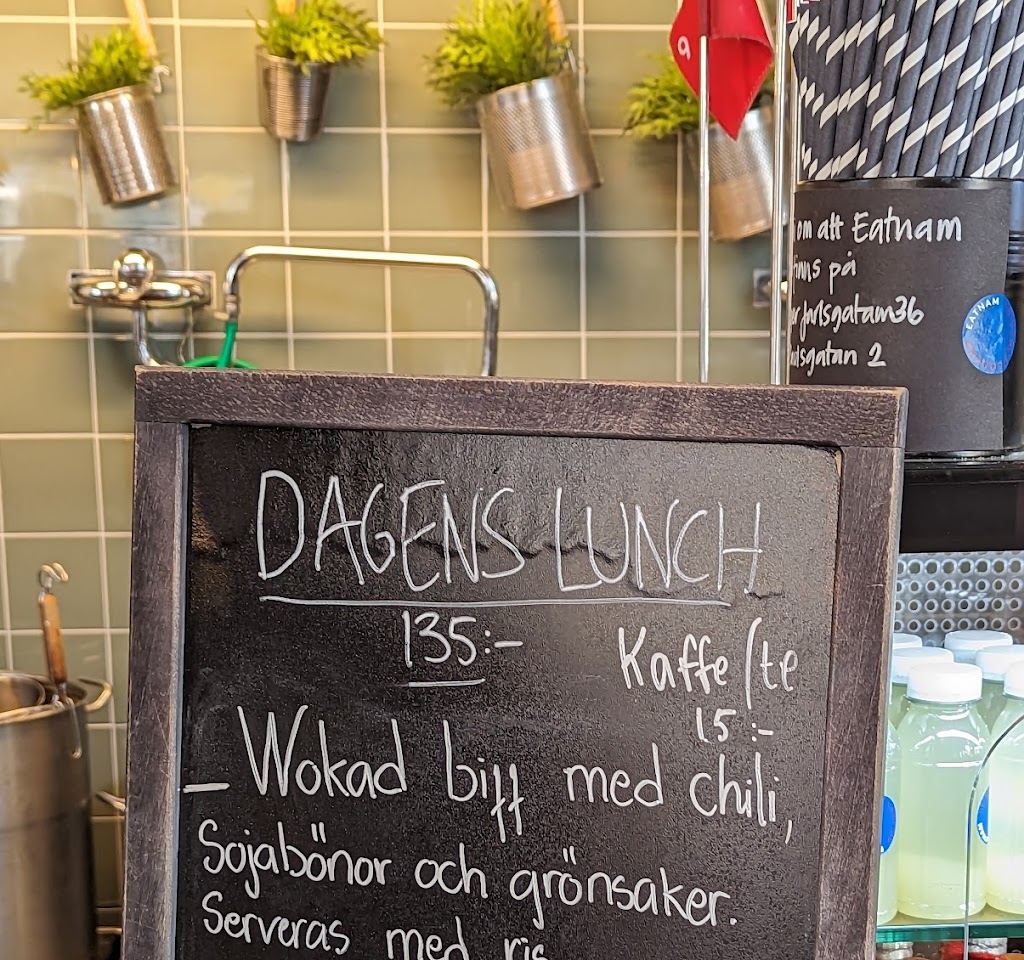 9
om att Eatnam
finns på
Jarlsgatan 36
gatan 2
EATNAM
DAGENS LUNCH
135:-
Kaffe/te
15:-
– Wokad biff med chili,
Sojabönor och grönsaker.
Serveras med ris